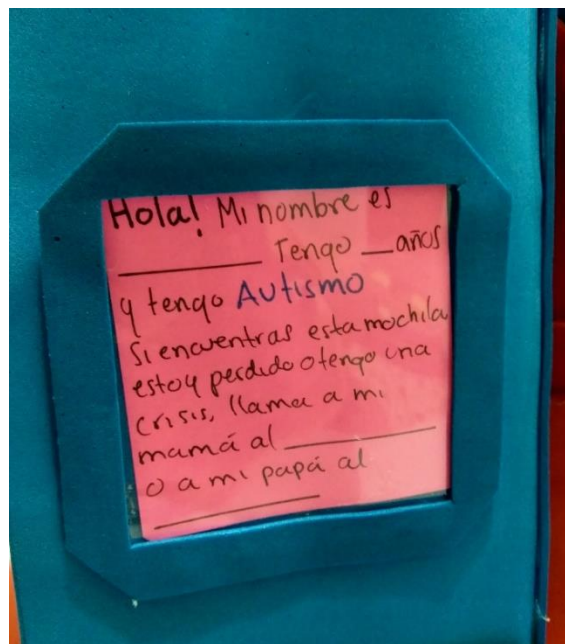 Hola! Mi nombre es
__________ Tengo __ años
y tengo Autismo
Si encuentras esta mochila
estoy perdido o tengo una
crisis, llama a mi
mamá al __________
o a mi papá al
__________